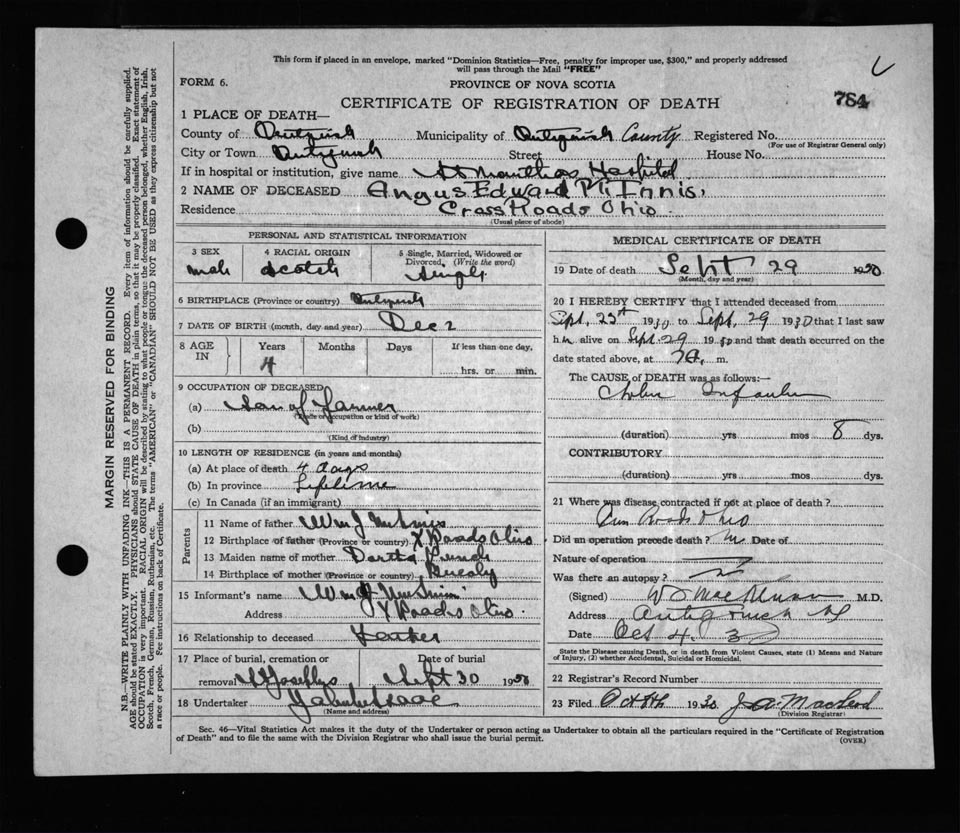 This form if placed in an envelope, marked "Dominion Statistics—Free, penalty for improper use, $300," and properly addressed
will pass through the Mail "FREE"
FORM 6.
PROVINCE OF NOVA SCOTIA
CERTIFICATE OF REGISTRATION OF DEATH
784
1 PLACE OF DEATH—
County of Antigonish Municipality of Antigonish County Registered No.
(For use of Registrar General only)
City or Town Antigonish Street House No.
If in hospital or institution, give name St Marthas Hospital
2 NAME OF DECEASED Angus Edward McInnis
Residence Cross Roads Ohio.
(Usual place of abode)
PERSONAL AND STATISTICAL INFORMATION
3 SEX 4 RACIAL ORIGIN 5 Single, Married, Widowed or
Divorced, (Write the word)
male Scotch Single
6 BIRTHPLACE (Province or country) Antigonish
7 DATE OF BIRTH (month, day and year) Dec 2
8 AGE IN Years Months Days If less than one day,
4 hrs. or min.
9 OCCUPATION OF DECEASED
(a) Son of Farmer
(Trade or occupation or kind of work)
(b)
(Kind of industry)
10 LENGTH OF RESIDENCE (in years and months)
(a) At place of death 4 days
(b) In province Lifetime
(c) In Canada (if an immigrant)
Parents
11 Name of father Wm J McInnis
12 Birthplace of father (Province or country) X Roads Ohio
13 Maiden name of mother
14 Birthplace of mother (Province or country)
15 Informant's name Wm J McInnis
Address X Roads Ohio.
16 Relationship to deceased Father
17 Place of burial, cremation or Date of burial
removal St Josephs Sept 30 1930
18 Undertaker
(Name and address)
MEDICAL CERTIFICATE OF DEATH
19 Date of death Sept 29 1930
(Month, day and year)
20 I HEREBY CERTIFY that I attended deceased from
Sept. 25th 1930 to Sept. 29 1930 that I last saw
him alive on Sept. 29 1930 and that death occurred on the
date stated above, at m.
The CAUSE of DEATH was as follows:—
Cholera Infantum
(duration) yrs mos 8 dys.
CONTRIBUTORY
(duration) yrs mos dys.
21 Where was disease contracted if not at place of death?
Roads Ohio
Did an operation precede death? No Date of
Nature of operation
Was there an autopsy? No
(Signed) M.D.
Address Antigonish NS
Date Oct 4. 30
State the Disease causing Death, or in death from Violent Causes, state (1) Means and Nature
of Injury, (2) whether Accidental, Suicidal or Homicidal.
22 Registrar's Record Number
23 Filed Oct 8th 1930 J A MacLeod
(Division Registrar)
Sec. 46—Vital Statistics Act makes it the duty of the Undertaker or person acting as Undertaker to obtain all the particulars required in the "Certificate of Registration
of Death" and to file the same with the Division Registrar who shall issue the burial permit.
(OVER)
MARGIN RESERVED FOR BINDING
N.B.—WRITE PLAINLY WITH UNFADING INK—THIS IS A PERMANENT RECORD. Every item of information should be carefully supplied.
AGE should be stated EXACTLY. PHYSICIANS should STATE CAUSE OF DEATH in plain terms, so that it may be properly classified. Exact statement of
OCCUPATION is very important. RACIAL ORIGIN will be described by stating to what people or tongue the deceased person belonged, whether English, Irish,
Scotch, French, German, Russian, Ruthenian, etc. The terms "AMERICAN" or "CANADIAN" SHOULD NOT BE USED as they express citizenship but not
a race or people. Fee instructions on back of Certificate.